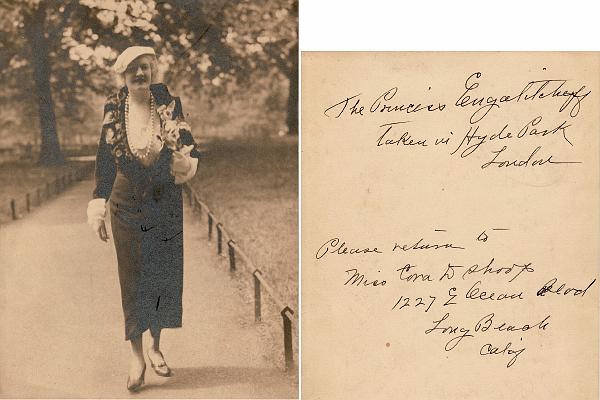 The Princess Engalitcheff
Taken in Hyde Park
London
Please return to
Miss Cora D
1227 E Ocean Blvd
Long Beach
Calif